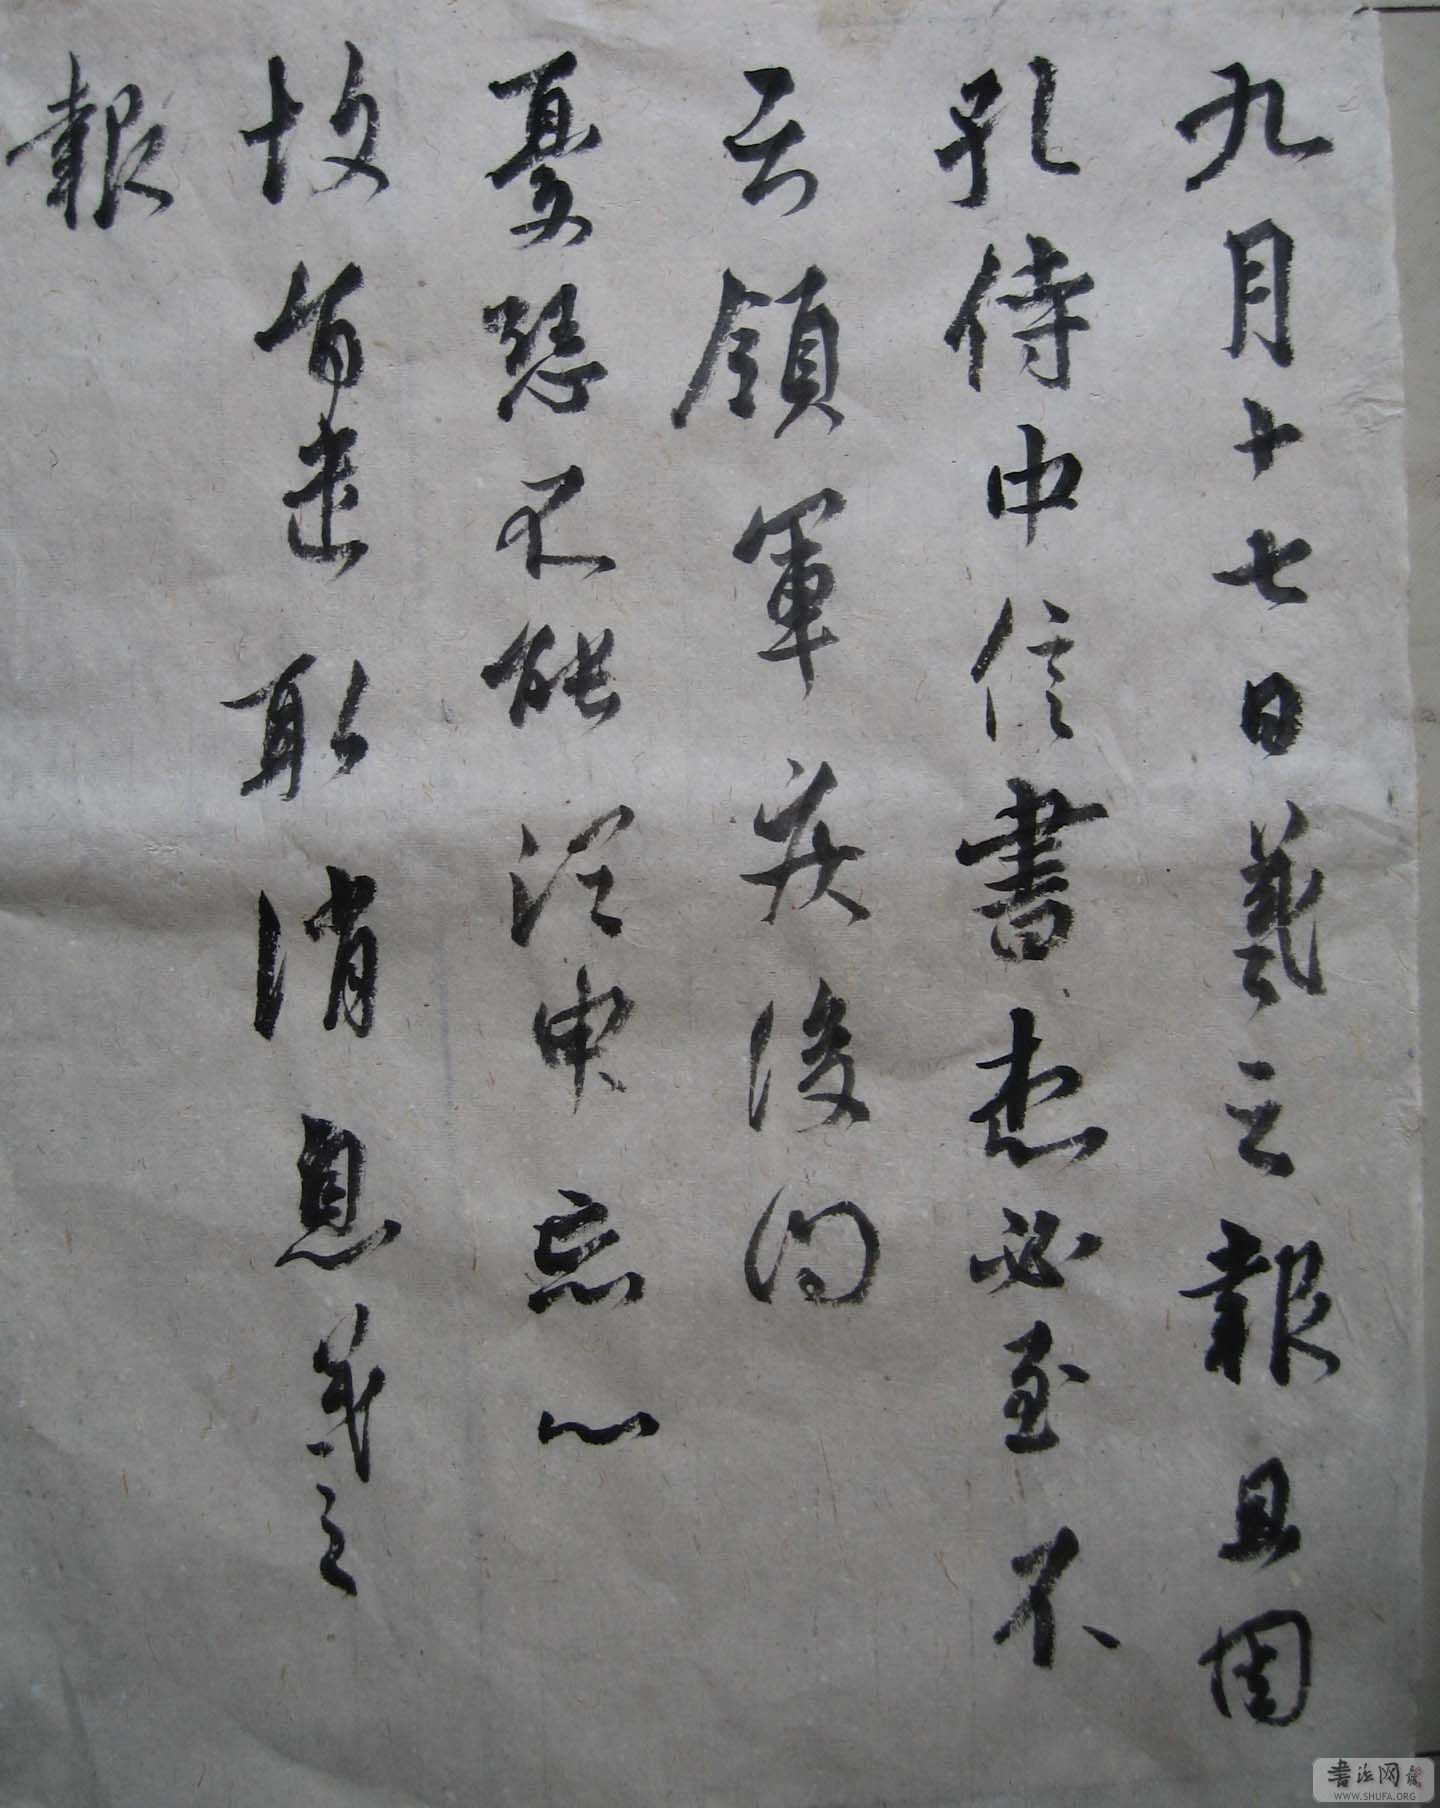 九月十七日羲之報且因
孔侍中信書想必至不
知領軍疾後問
憂懸不能須臾忘心
故旨遣取消息羲之
報
書法网
WWW.SHUFA.ORG